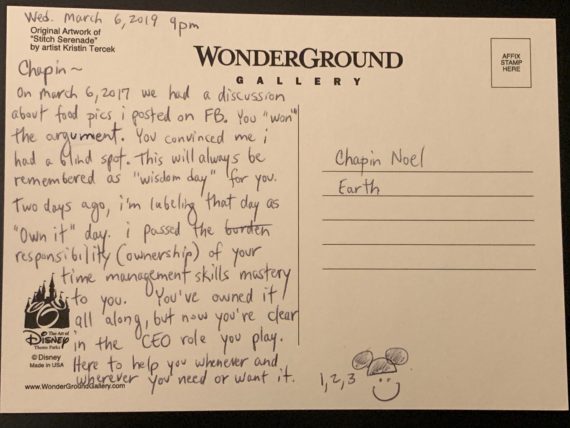 Wed. March 6, 2019 9pm
Original Artwork of
"Stitch Serenade"
by artist Kristin Tercek
WONDERGROUND
GALLERY
AFFIX
STAMP
HERE
Chapin ~
On March 6, 2017 we had a discussion
about food pics i posted on FB. You "won"
the argument. You convinced me i
had a blind spot. This will always be
remembered as "wisdom day" for you.
Two days ago, i'm labeling that day as
"Own it" day. i passed the burden
responsibility (ownership) of your
time management skills mastery
to you. You've owned it
all along, but now you're clear
in the CEO role you play.
Here to help you whenever and
wherever you need or want it.
The Art of
Disney
Theme Parks
© Disney
Made in USA
www.WonderGroundGallery.com
Chapin Noel
Earth
1, 2, 3